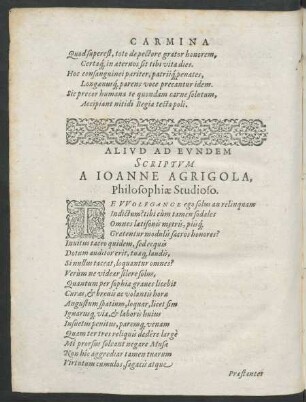 CARMINA
Quod superest, toto de pectore grator honorem,
Certaq́, in aternos sit tibi vita dies.
Hoc consanguinei pariter, patrijq́ penates,
Longanusq́, parens voce precantur idem.
Sic precor humana te quondam carne solutum,
Accipiant nitidi Regia tecta poli.
ALIVD AD EVNDEM
SCRIPTVM
A IOANNE AGRIGOLA,
Philosophiæ Studioso.
TE VVOLFGANGE ego solus an relinquam
Indictum? tibi cùm tamen sodales
Omnes latisonis metris, pijsq́,
Gratentur modulis sacros honores?
Inuitus taceo quidem, sed equis
Dotum auditor erit, tuaq́, laudis,
Si mussus taceat, loquantur omnes?
Verùm ne videar silere solus,
Quantum per sophia graues licebit
Curas, & breuis ac volantis hora
Augustum spatium, loquar, licet sim
Ignarusq́, via, & laboris huius
Insuetus penitus, parumq́, vnquam
Quam ter tres reliquis dedêre largè
Mi prorsus soleant negare Musa
Non hic aggrediar tamen tuarum
Virtutum cumulos, sagacis atque
Præstantis